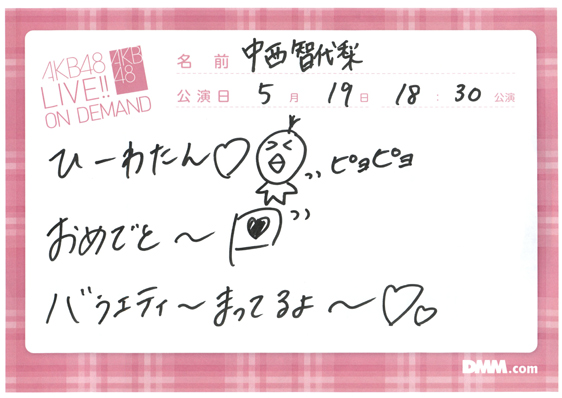 AKB48
LIVE!!
ON DEMAND
AKB
48
名前 中西智代梨
公演日 5月 19日 18:30公演
ひーわたん♡
ピヨピヨ
おめでと〜
バラエティ〜まってるよ〜♡♡
DMM.com